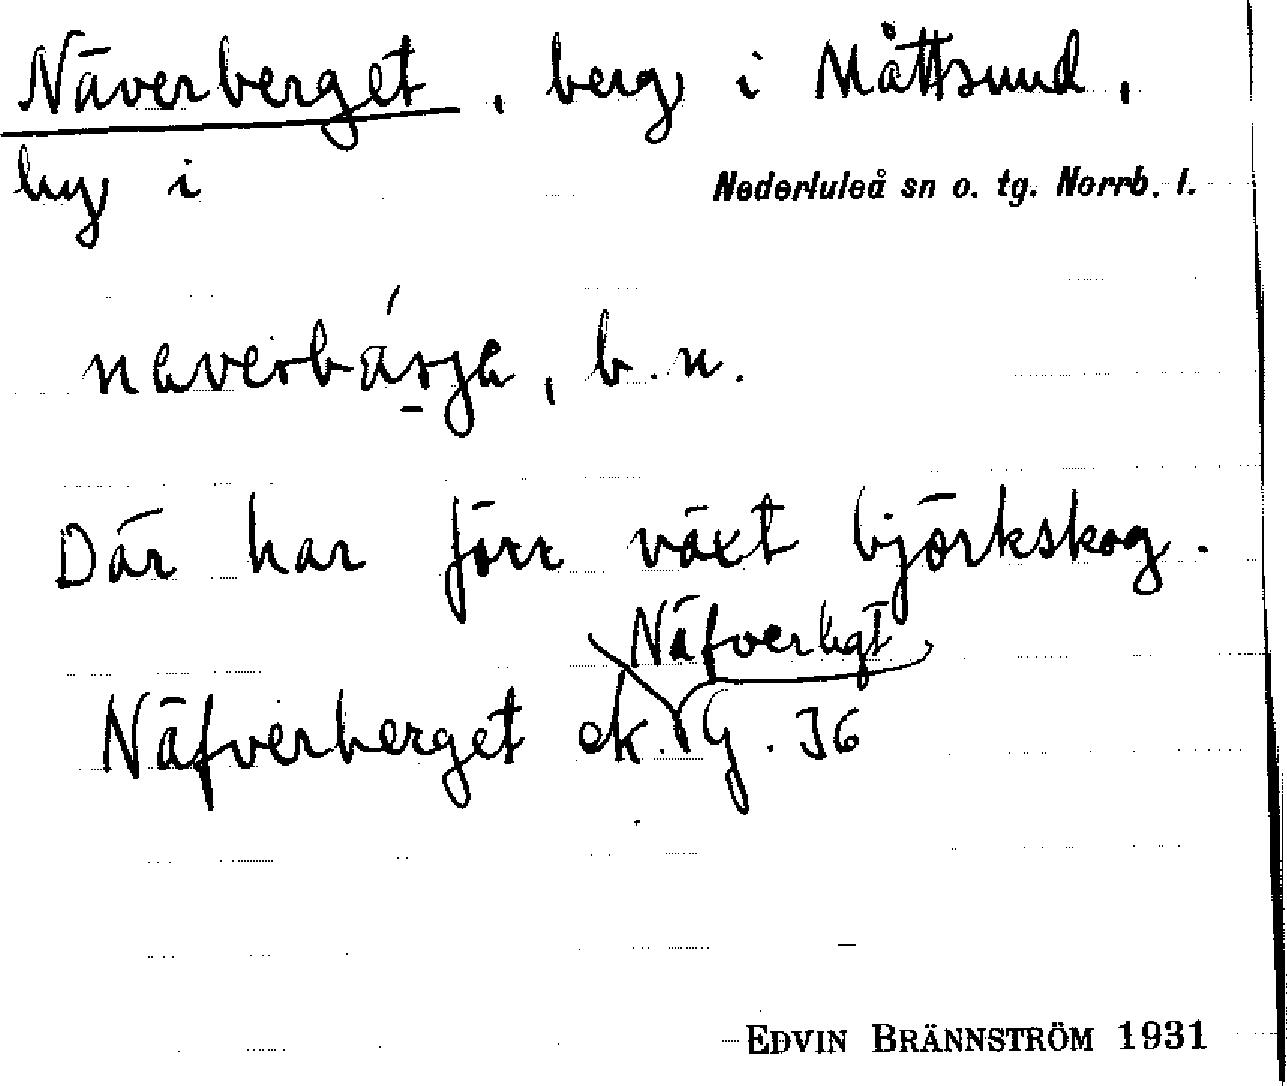 Näverberget, berg i Måttsund,
by i Nederluleå sn o. tg. Norrb. l.
naverbärja, b.n.
Där har förr växt björkskog.
Näfverbgt
Näfverberget ek. G. 36
EDVIN BRÄNNSTRÖM 1931